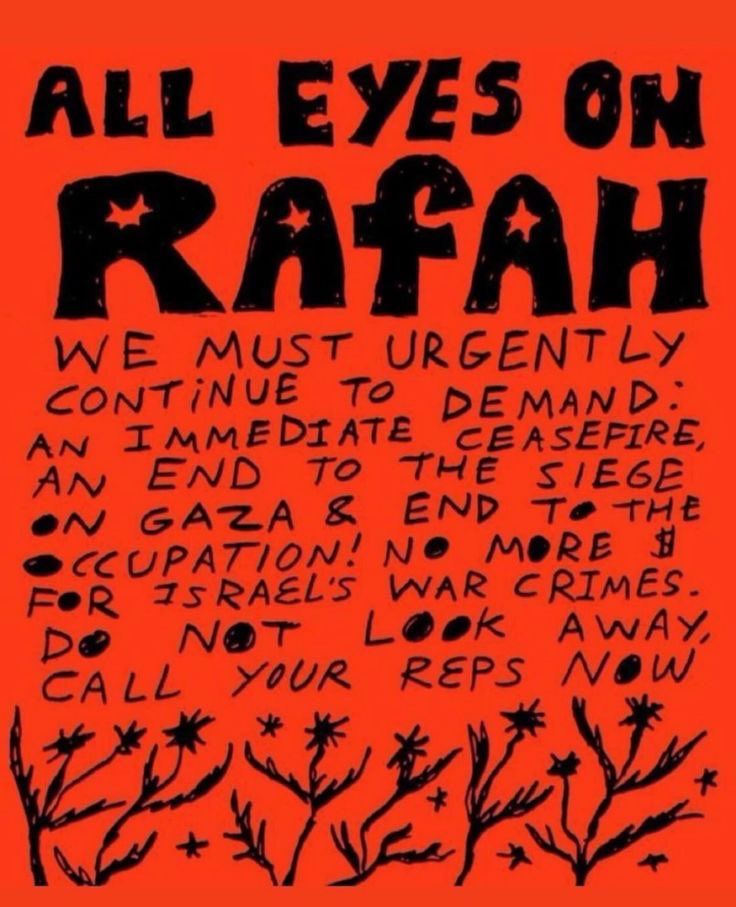 ALL EYES ON
RAFAH
WE MUST URGENTLY
CONTINUE TO DEMAND:
AN IMMEDIATE CEASEFIRE,
AN END TO THE SIEGE
ON GAZA & END TO THE
OCCUPATION! NO MORE $
FOR ISRAEL'S WAR CRIMES.
DO NOT LOOK AWAY,
CALL YOUR REPS NOW